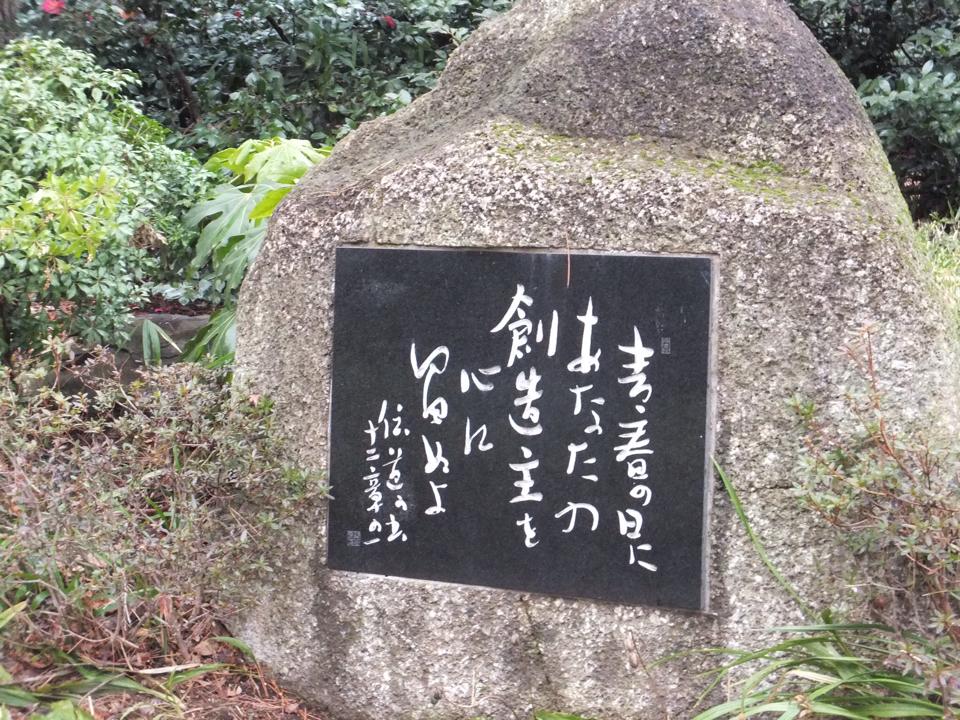 青春の日に
あなたの
創造主を
心に
留めよ
伝道の書
十二章の一